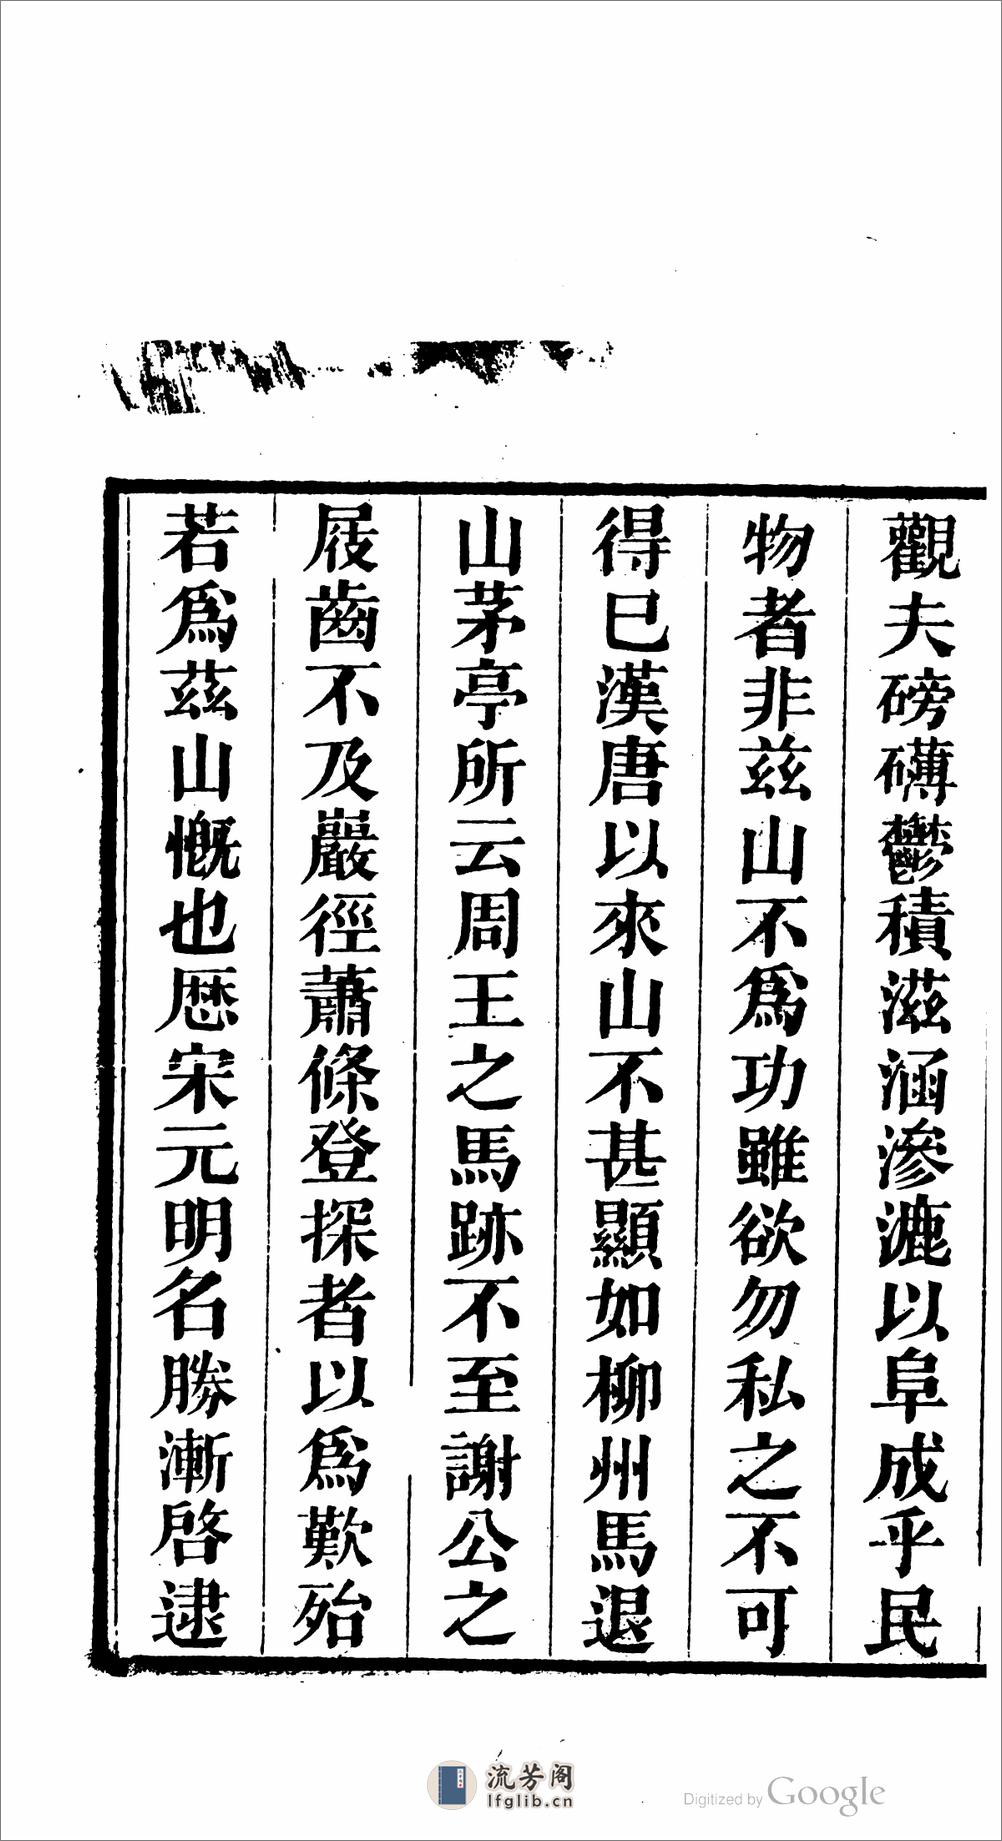 觀夫磅礴鬱積滋涵滲漉以阜成乎民
物者非兹山不爲功雖欲勿私之不可
得巳漢唐以來山不甚顯如柳州馬退
山茅亭所云周王之馬跡不至謝公之
屐齒不及巖徑蕭條登探者以爲歎殆
若爲茲山慨也歷宋元明名勝漸啓逮
流芳阁
lfglib.cn
Digitized by Google